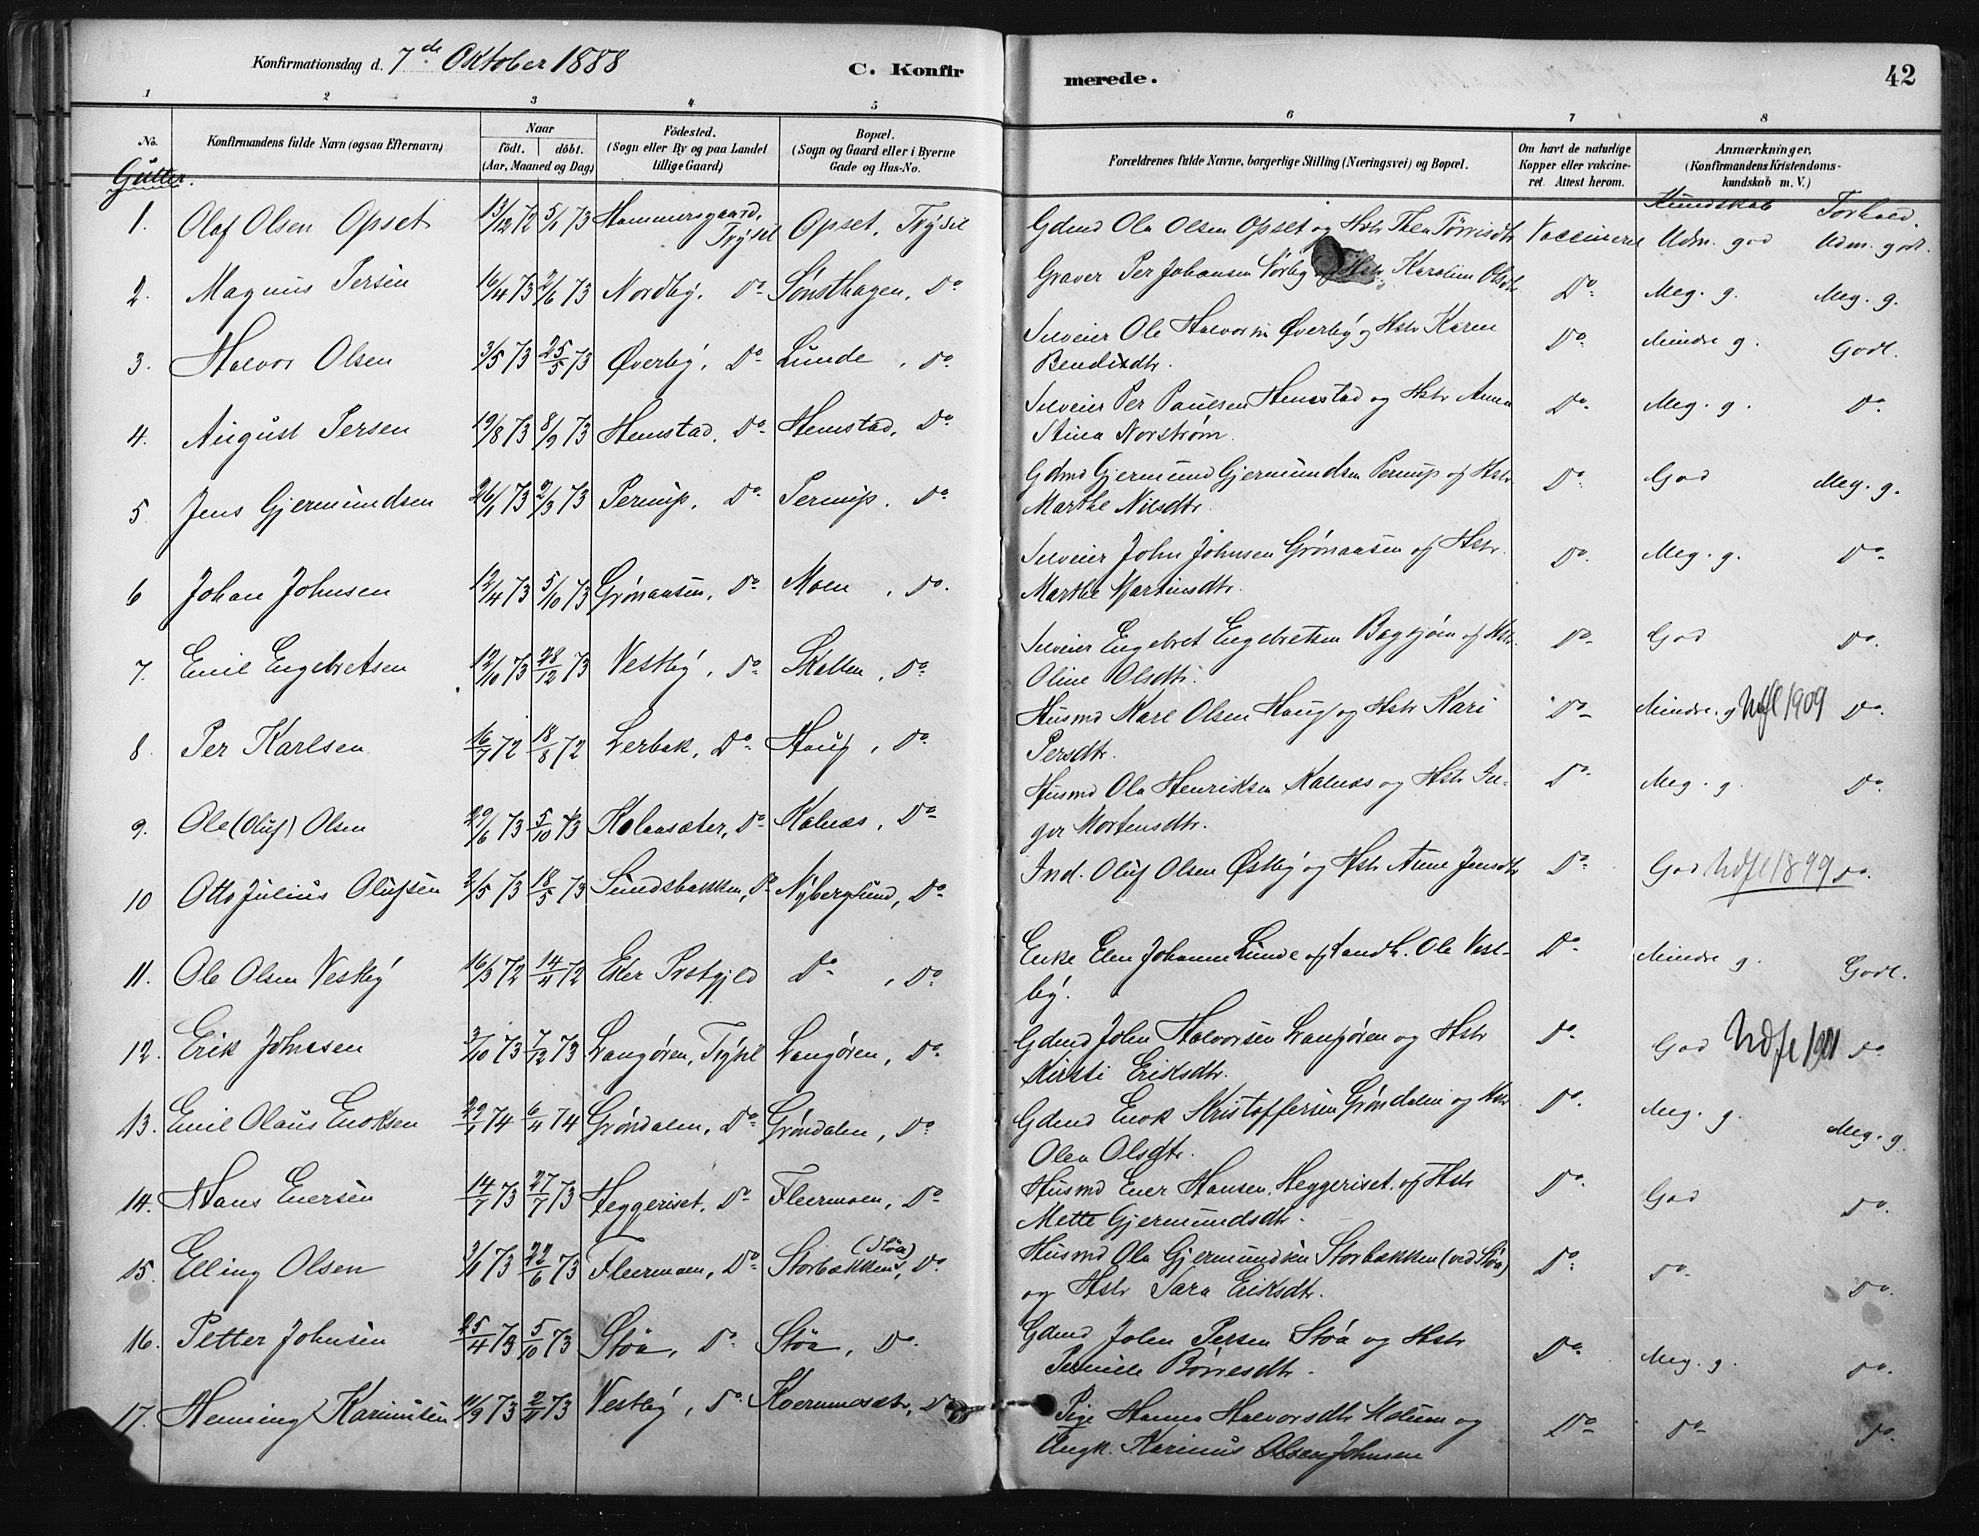 Konfirmationsdag d. 7de Oktober 1888 C. Konfirmerede. 42
1 2 3 4 5 6 7 8
No. Konfirmandens fulde Navn (ogsaa Efternavn) Naar födt. döbt. (Aar, Maaned og Dag) Födested. (Sogn eller By og paa Landet tillige Gaard) Bopæl. (Sogn og Gaard eller i Byerne Gade og Hus-No. Forældrenes fulde Navne, borgerlige Stilling (Næringsvei) og Bopæl. Om havt de naturlige Kopper eller vakcineret. Attest herom. Anmærkninger, (Konfirmandens Kristendomskundskab m. V.)
Gutter. Kundskab Forhold
1. Olaf Olsen Opset 13/12 72 5/1 73 Hammersgaard, Trysil Opset, Trysil Gdmd Ola Olsen Opset og Hstr Thea Törrisdtr Vaccineret Udm. god Udm. godt.
2. Magnus Persen 16/4 73 2/6 73 Nordby, Do Sønsthagen, Do Graver Per Johansen Norby og Hstr. Karoline Olsdtr Do Meg. g. Meg. g.
3. Halvor Olsen 3/5 73 25/5 73 Øverby, Do Lunde, Do Selveier Ole Halvorsen Øverby og Hstr Karen
Bendixdtr. Do Mindre g. Godt.
4. August Persen 19/8 73 8/9 73 Hemstad, Do Hemstad, Do Selveier Per Paulsen Hemstad og Hstr Anna
Stina Norstrøm. Do Meg. g. Do
5 Jens Gjermundsen 26/1 73 2/3 73 Pernup, Do Pernup, Do Gdmd Gjermund Gjermundsen Pernup og Hstr
Marthe Nilsdtr. Do God Meg. g.
6 Johan Johnsen 12/4 73 5/10 73 Grønaasen, Do Moen, Do Selveier John Johnsen Grønaasen og Hstr.
Marthe Martinsdtr. Do Meg. g. Do
7. Emil Engebretsen 12/10 73 28/12 73 Vestby, Do Skatten, Do Selveier Engebret Engebretsen Bagkjøen og Hstr.
Oline Olsdtr. Do God Do
8. Per Karlsen 16/7 72 18/8 72 Lerbak, Do Haug, Do Husmd Karl Olsen Haug og Hstr Kari
Persdtr. Do Mindre g Udfl 1909 Do
9. Ole (Oluf) Olsen 29/6 73 5/10 73 Kolaasæter, Do Kalnæs, Do Husmd Ola Henriksen Kalnæs og Hstr In-
ger Mortensdtr. Do Meg. g. Do
10 Otto Julius Olufsen 2/5 73 18/5 73 Sundsbakken, Do Nybergsund, Do Ind. Oluf Olsen Østby og Hstr Anne Jensdtr Do God Udfl 1899 Do
11. Ole Olsen Vestby 16/3 72 14/4 72 Prstgjeld Do, Do Enke Elen Johanne Lunde af Landh. Ole Vest-
by. Do Mindre g. Godt.
12. Erik Johnsen 3/10 73 7/12 73 Langøren, Trysil Langøren, Do Gdmd John Halvorsen Langøren og Hstr
Kirsti Eriksdtr. Do God Udfl 1901 Do
13. Emil Olaus Enoksen 22/1 74 6/4 74 Grøndalen, Do Grøndalen, Do Gdmd Enok Kristoffersen Grøndalen og Hstr
Olea Olsdtr. Do Meg. g. Meg. g.
14. Hans Enersen 14/7 73 27/7 73 Heggeriset, Do Fleermoen, Do Husmd Ener Hansen Heggeriset og Hstr
Mette Gjermundsdtr. Do God Do
15. Elling Olsen 3/1 73 22/6 73 Fleermoen, Do Storbækken (Støa), Do Husmd Ola Gjermundsen Storbækken (ved Støa)
og Hstr Sara Eriksdtr. Do Do Do
16. Petter Johnsen 25/4 73 5/10 73 Støa, Do Støa, Do Gdmd John Persen Støa og Hstr
Pernille Børresdtr. Do Meg. g. Do
17. Henning Karinusen 11/9 73 2/11 73 Vestby, Do Do Pige Hanna Halvorsdtr Moum og
Ungk. Karinus Olsen Johnsen Do Do Do